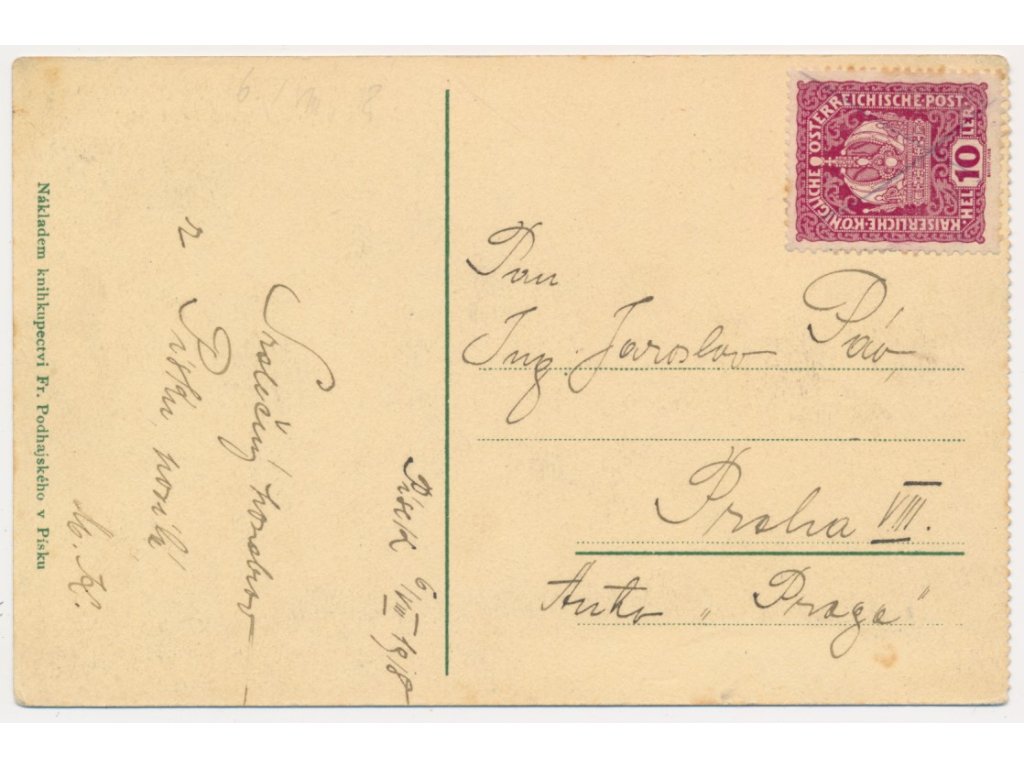 6. VIII. 8
KAISERLICHE·KÖNIGLICHE ÖSTERREICHISCHE·POST
HEL 10 LER
Písek 6/VIII 1918
Srdečný
z Písku
M. K.
Nákladem knihkupectví Fr. Podhajského v Písku
Pan
Ing. Jaroslav Páv,
Praha VIII.
Auto „Praga"